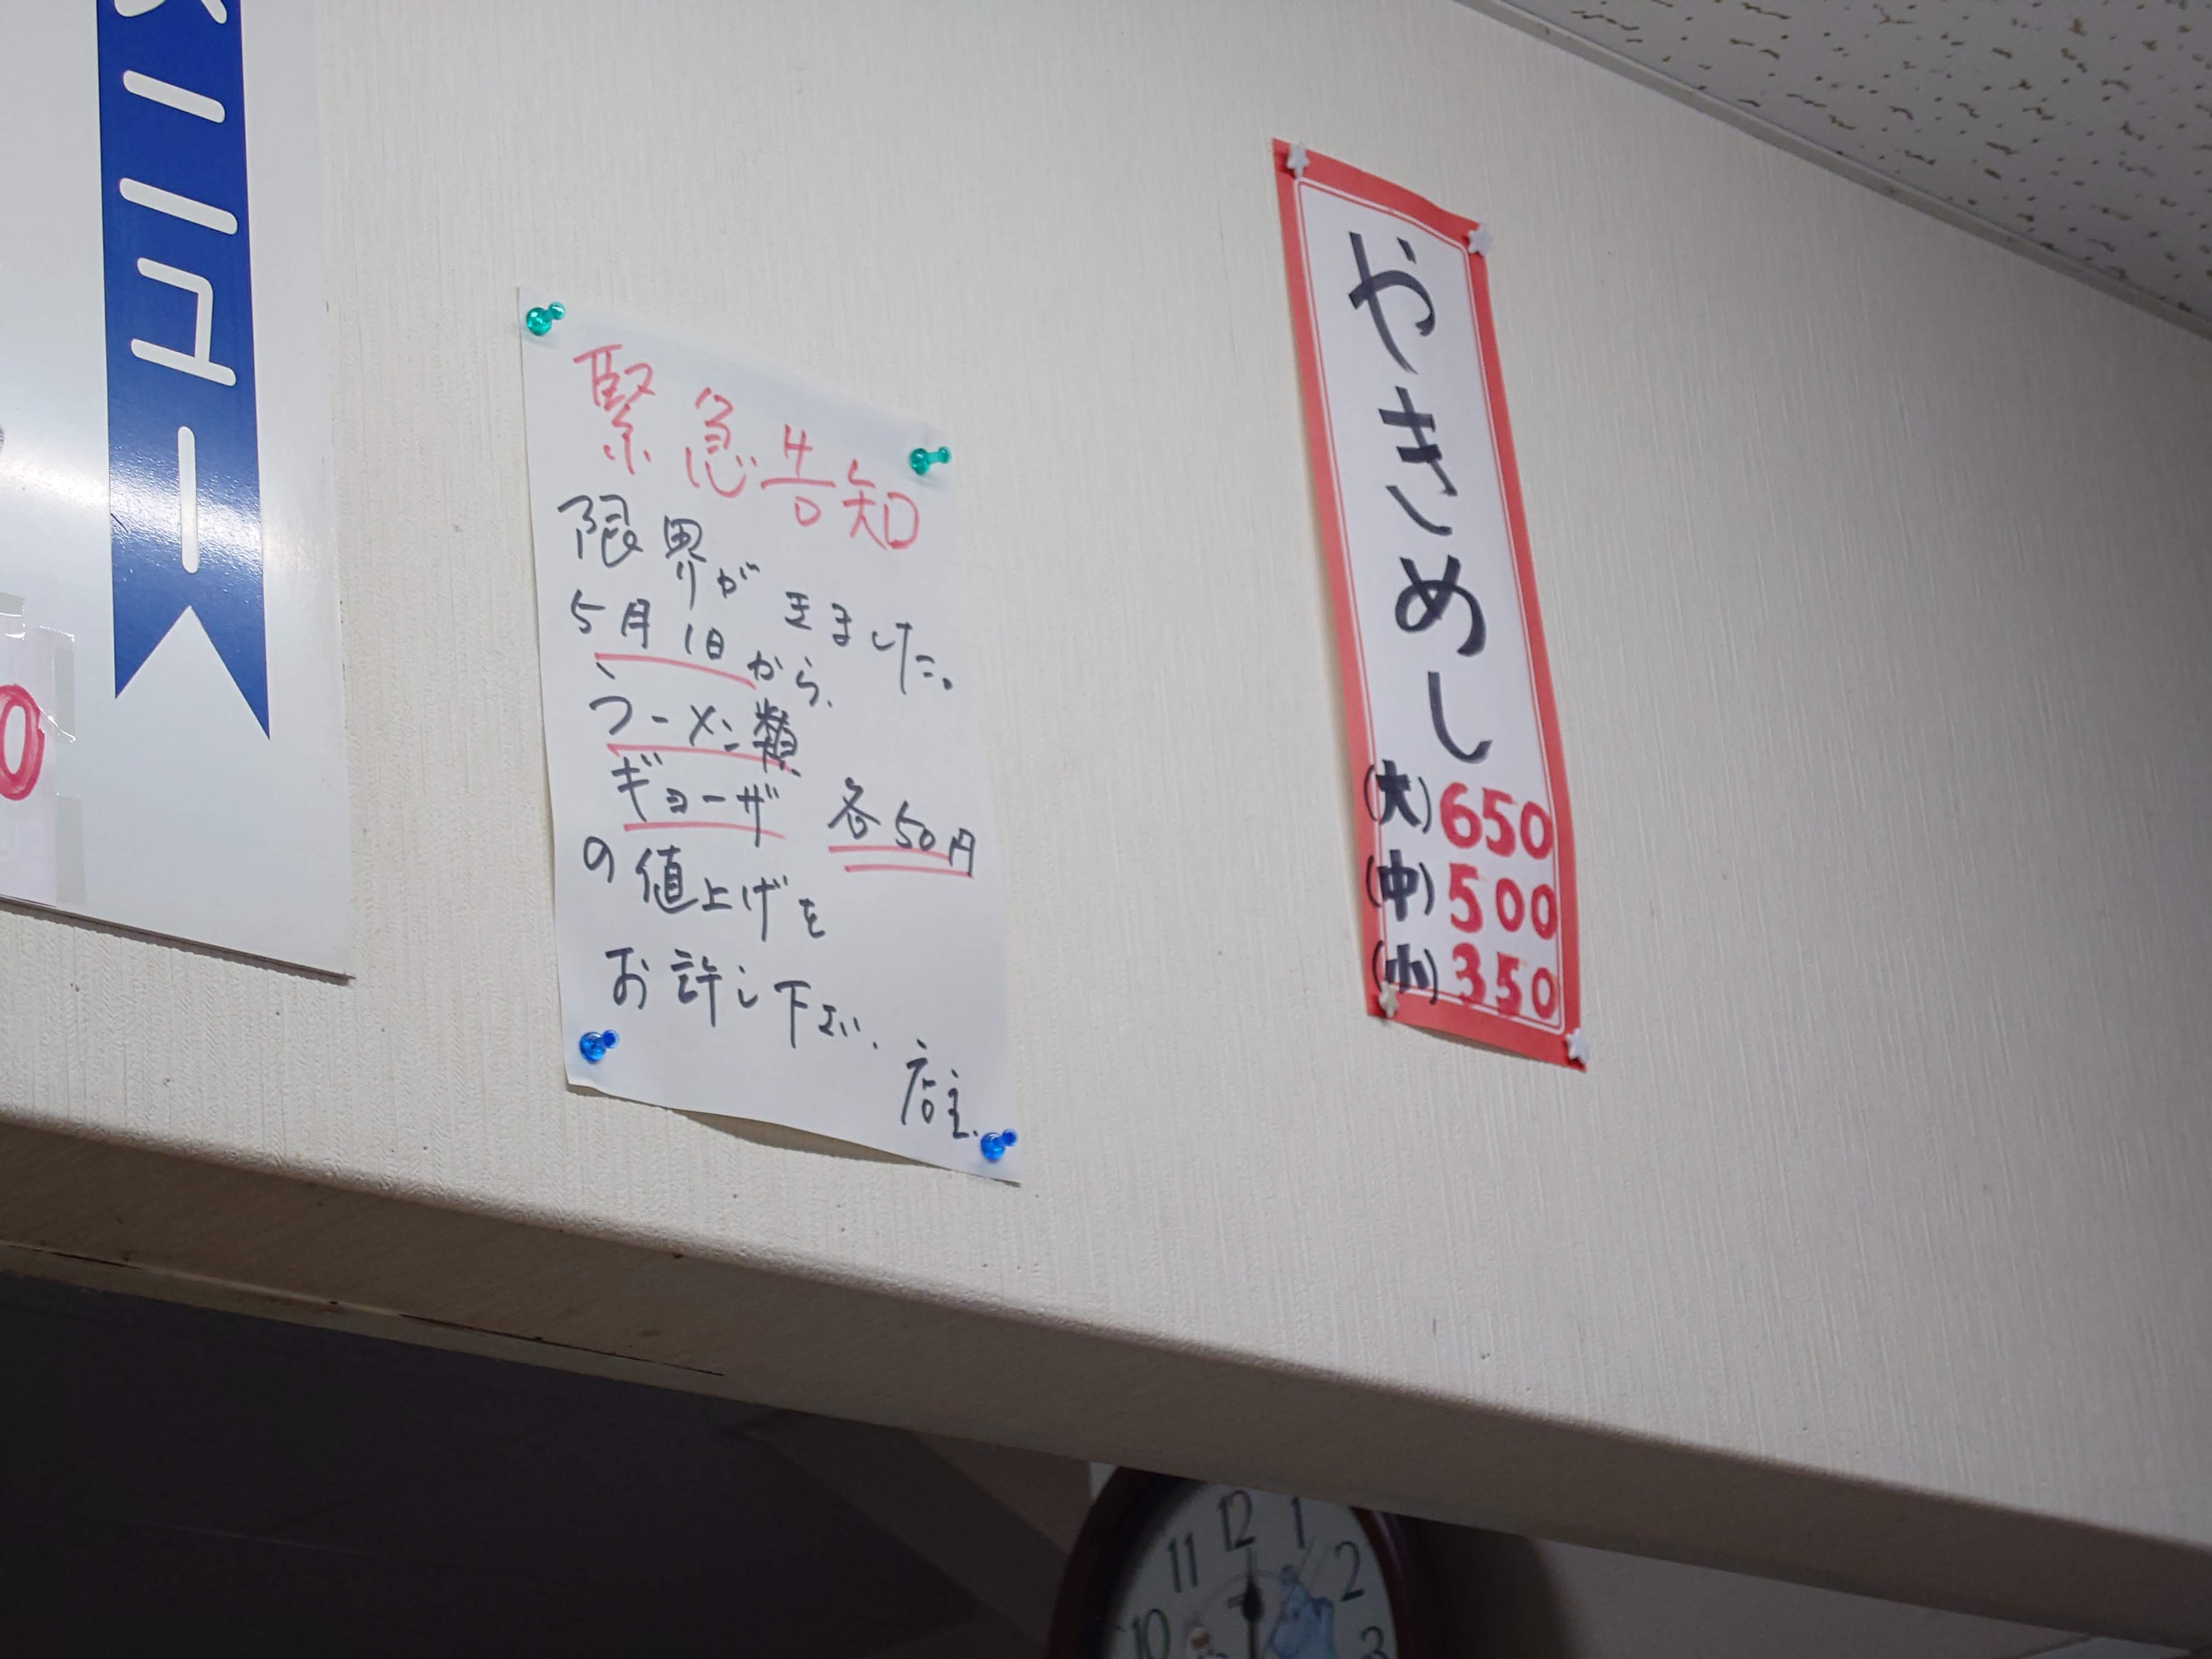 ニュー
緊急告知
限界がきました。
5月1日から、
ラーメン類
ギョーザ 各50円
の値上げを
お許し下さい、
店主、
やきめし
(大)650
(中)500
(小)350
0
11
12
1
2
10
3